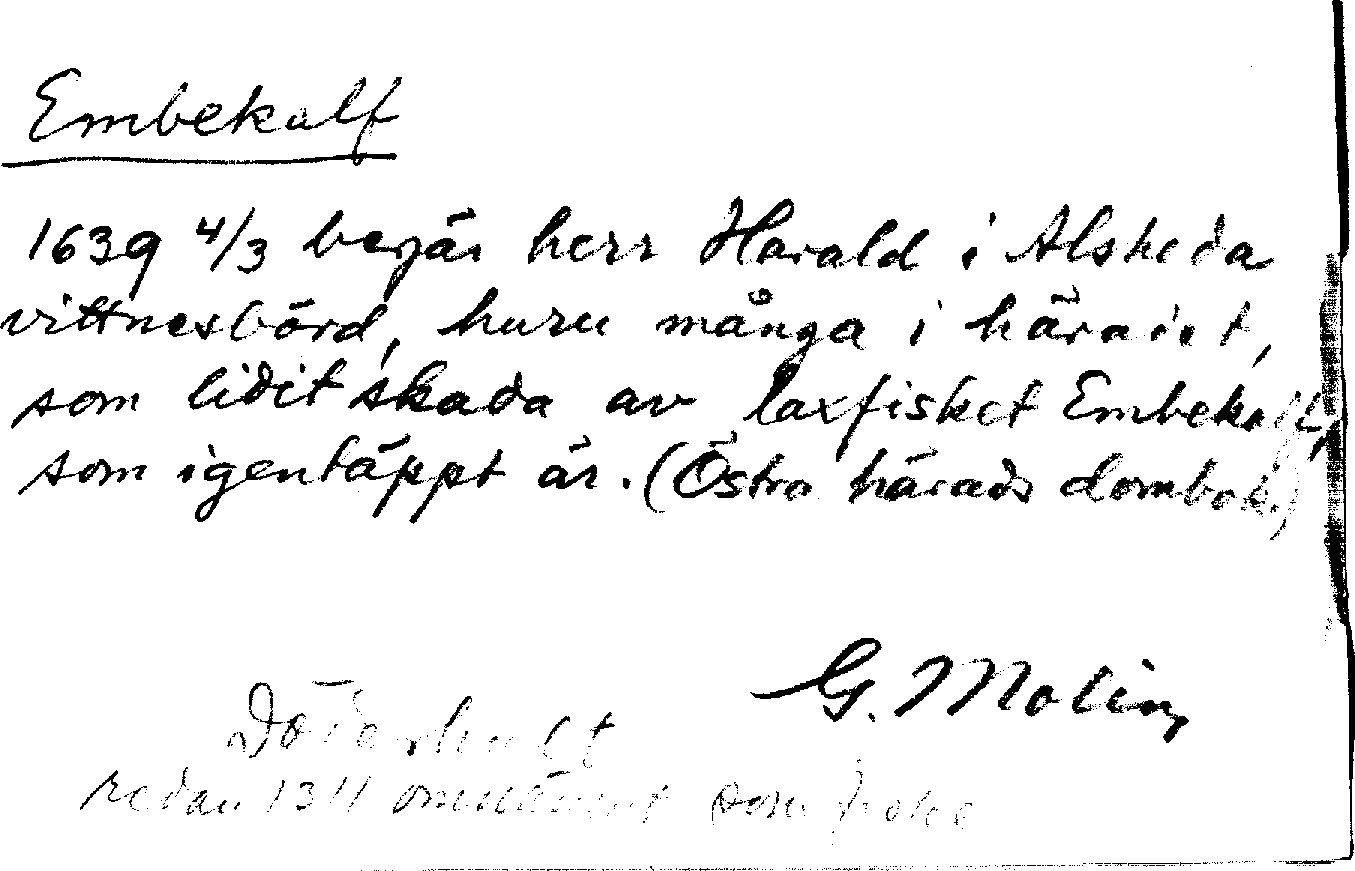 Embekalf
1639 4/3 begär herr Harald i Alsheda
vittnesbörd, huru många i häradet,
som lidit skada av laxfisket Embekalf,
som igentäppt är. (Östra härads dombok.)
G. Molin
Döderhult
redan 1311 omnämnt som